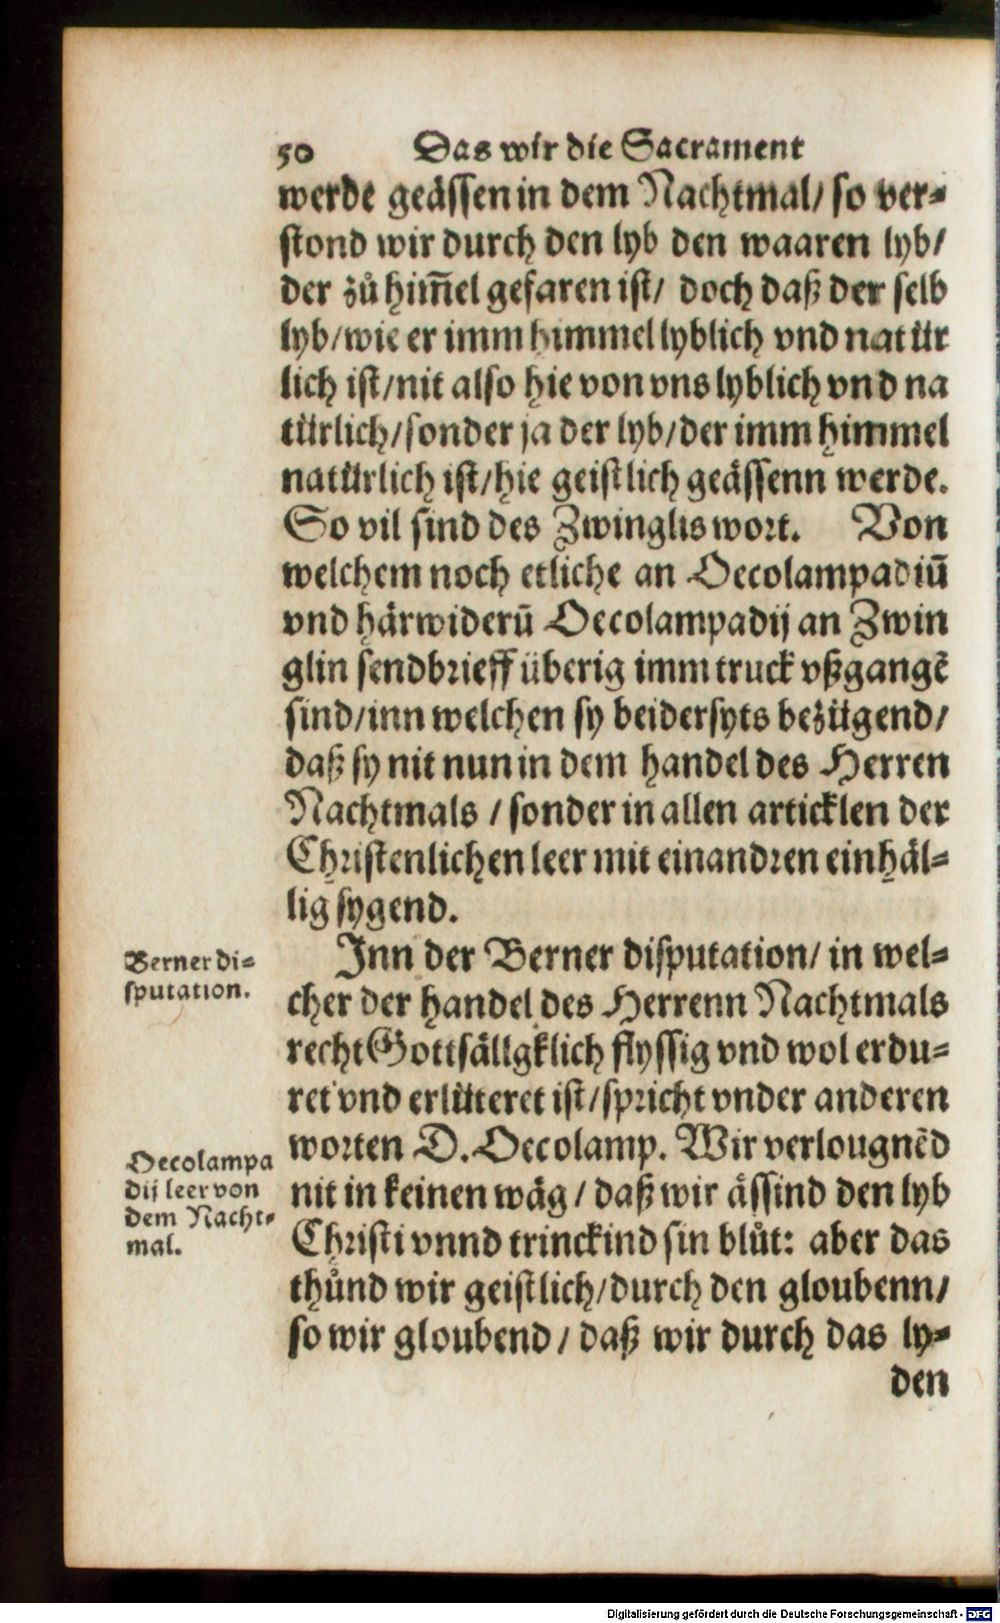 50 Das wir die Sacrament
werde geässen in dem Nachtmal/ so ver-
stond wir durch den lyb den waaren lyb/
der zů him̄el gefaren ist/ doch daß der selb
lyb/wie er imm himmel lyblich vnd natür
lich ist/nit also hie von vns lyblich vnd na
türlich/sonder ja der lyb/der imm himmel
natürlich ist/hie geistlich geässenn werde.
So vil sind des Zwinglis wort. Von
welchem noch etliche an Oecolampadiū
vnd härwiderū Oecolampadij an Zwin
glin sendbrieff überig imm truck vßgangē
sind/inn welchen sy beidersyts bezügend/
daß sy nit nun in dem handel des Herren
Nachtmals / sonder in allen articklen der
Christenlichen leer mit einandren einhäl-
lig sygend.
Berner di-
sputation.
Inn der Berner disputation/ in wel-
cher der handel des Herrenn Nachtmals
recht Gottsällgklich flyssig vnd wol erdu-
ret vnd erlütteret ist/spricht vnder anderen
Oecolampa
dij leer von
dem Nacht-
mal.
worten D. Oecolamp. Wir verlougnēd
nit in keinen wäg / daß wir ässind den lyb
Christi vnnd trinckind sin blůt: aber das
thůnd wir geistlich/durch den gloubenn/
so wir gloubend / daß wir durch das ly-
den
Digitalisierung gefördert durch die Deutsche Forschungsgemeinschaft - DFG